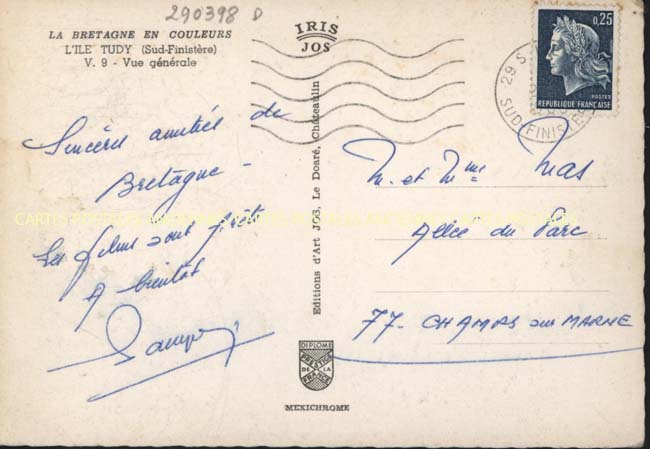 290398 D
LA BRETAGNE EN COULEURS
L'ILE TUDY (Sud-Finistère)
V. 9 - Vue générale
IRIS
JOS
0,25
POSTES
REPUBLIQUE FRANÇAISE
29 S
SUD FINIS
Sincères amitiés de
Bretagne -
Les films sont prêts
A bientôt
Editions d'Art JOS, Le Doaré, Châteaulin
M. et Mme Mas
Allée du Parc
77 - CHAMPS sur MARNE
DIPLOME
PRESTIGE
DE LA
FRANCE
MEXICHROME